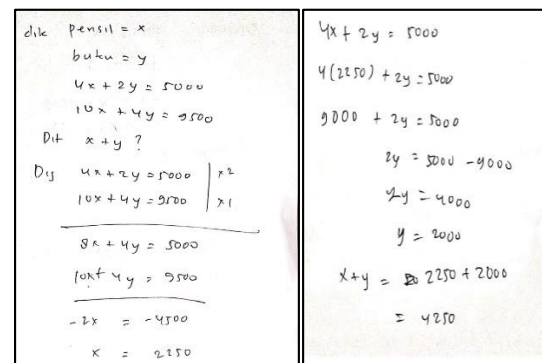 dik pensil = x
buku = y
4x + 2y = 5000
10x + 4y = 9500
Dit x + y ?
Dij 4x + 2y = 5000 | x 2
10x + 4y = 9500 | x 1
8x + 4y = 5000
10x + 4y = 9500
-2x = -4500
x = 2250
4x + 2y = 5000
4(2250) + 2y = 5000
9000 + 2y = 5000
2y = 5000 - 9000
2y = 4000
y = 2000
x+y = 2250 + 2000
= 4250